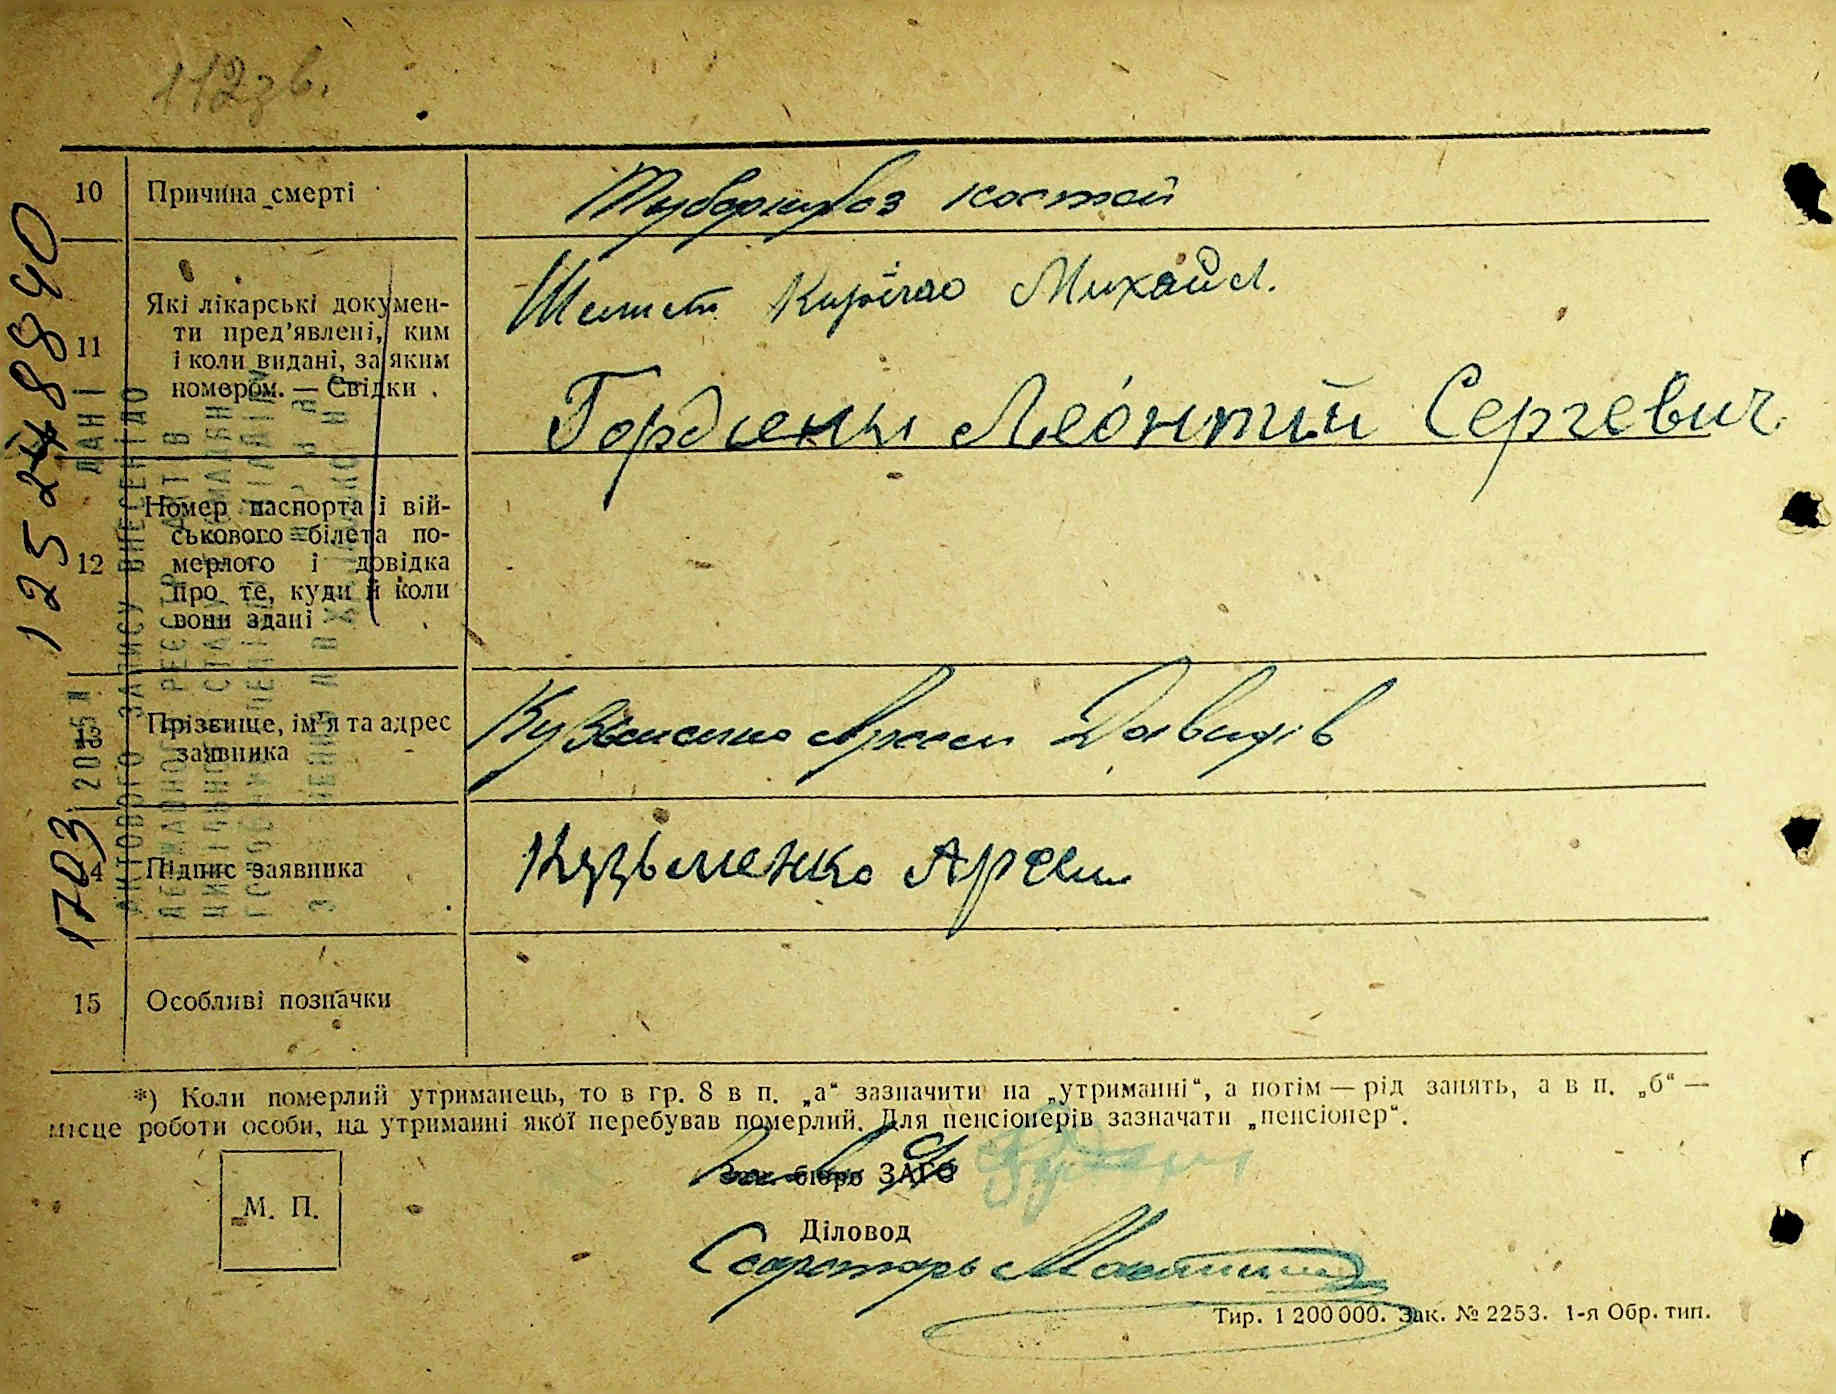 112зв.
10 Причина смерті Туберкульоз костей
11 Які лікарські докумен-
ти пред’явлені, ким
і коли видані, за яким
номером. — Свідки
Михайл.
Гордиенко Леонтий Сергевич
12 Номер паспорта і вій-
ськового білета по-
мерлого і довідка
про те, куди й коли
вони здані
13 Прізвище, ім’я та адрес
заявника
Кузьменко Арсен Давидів
14 Підпис заявника Кузьменко Арсен
15 Особливі позначки
*) Коли померлий утриманець, то в гр. 8 в п. „а“ зазначити на „утриманні“, а потім — рід занять, а в п. „б“ —
місце роботи особи, на утриманні якої перебував померлий. Для пенсіонерів зазначати „пенсіонер“.
Зав. бюро ЗАГС
М. П.
Діловод
Секретарь
Тир. 1 200 000. Зак. № 2253. 1-я Обр. тип.
ДАНІ
АКТОВОГО ЗАПИСУ ВНЕСЕНІ ДО